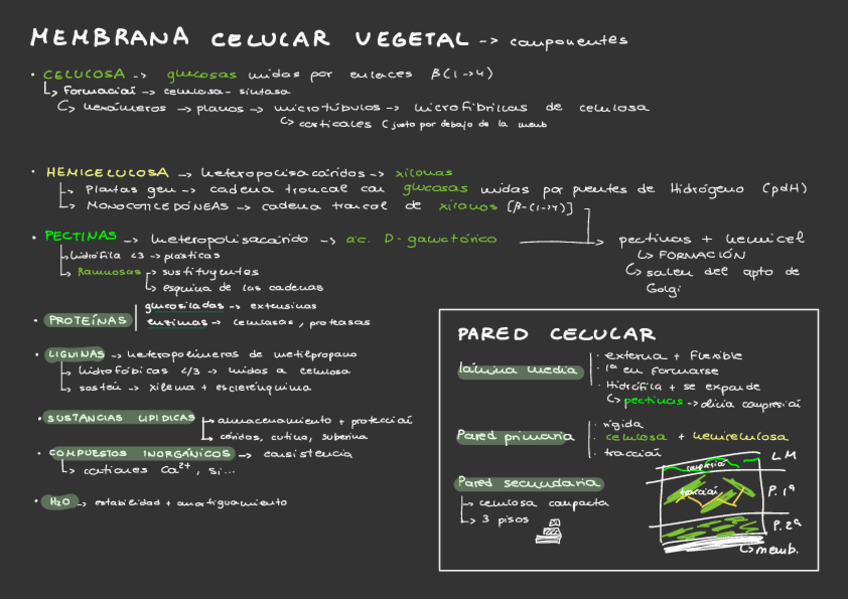 MEMBRANA CELULAR VEGETAL -> componentes
· CELULOSA -> glucosas unidas por enlaces β(1->4)
↳ Formación -> celulosa-sintasa
↳ hexámeros -> planos -> microtúbulos -> microfibrillas de celulosa
↳ corticales (justo por debajo de la memb
· HEMICELULOSA -> heteropolisacáridos -> xilanas
↳ Plantas gen -> cadena troncal con glucosas unidas por puentes de Hidrógeno (pdH)
↳ MONOCOTILEDÓNEAS -> cadena troncal de xilanos [β-(1->4)]
· PECTINAS -> heteropolisacárido -> ac. D-galactónico -> pectinas + hemicel
↳ hidrófila <3 -> plásticas
↳ Ramnosas
↳ sustituyentes
↳ esquina de las cadenas
↳ FORMACIÓN
↳ salen del apto de Golgi
· PROTEÍNAS
glucosiladas -> extensinas
enzimas -> celulasas, proteasas
· LIGNINAS -> heteropolímeros de metilpropano
↳ hidrofóbicas </3 -> unidas a celulosa
↳ sostén -> xilema + esclerénquima
· SUSTANCIAS LIPIDICAS
↳ almacenamiento + protección
↳ céridas, cutina, suberina
· COMPUESTOS INORGÁNICOS -> consistencia
↳ cationes Ca²⁺, Si...
· H₂O -> estabilidad + amortiguamiento
PARED CELULAR
lámina media
· externa + flexible
· 1ª en formarse
· Hidrófila + se expande
↳ pectinas -> alivia compresión
Pared primaria
· rígida
· celulosa + hemicelulosa
· tracción
Pared secundaria
↳ celulosa compacta
↳ 3 pisos
compresión
LM
tracción
P. 1ª
P. 2ª
↳ memb.